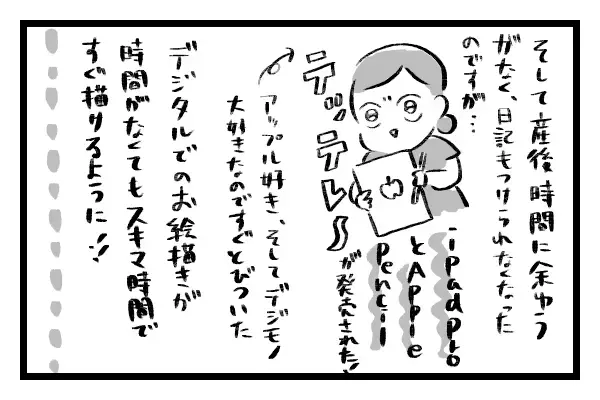 そして産後時間に余ゆう
がなく、日記もつけられなくなった
のですが…
テッテレ〜
ipadpro
とApple
pencil
が発売された!
アップル好き、そしてデジモノ
大好きなのですぐとびついた
デジタルでのお絵描きが
時間がなくてもスキマ時間で
すぐ描けるように!!